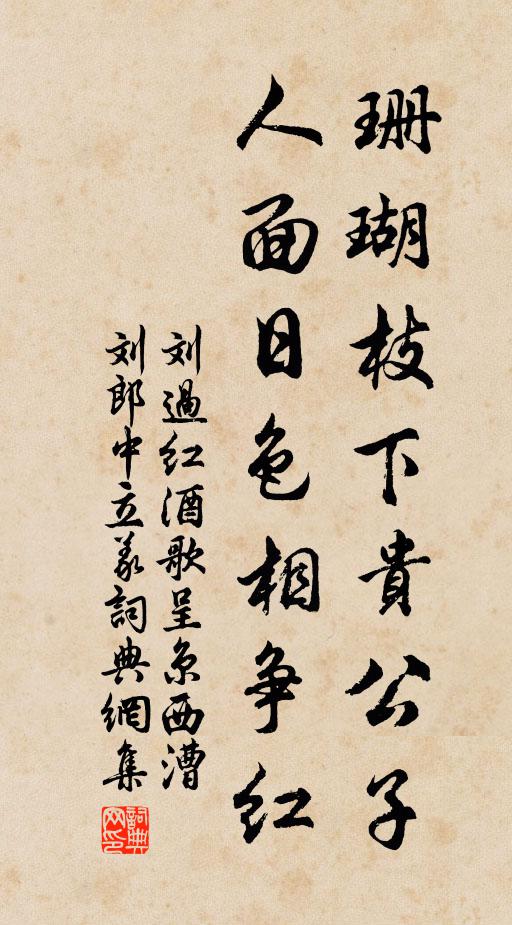 珊瑚枝下貴公子
人面日色相争红
刘過红酒歌呈京西漕
刘郎中立义詞典網集
詞典网印